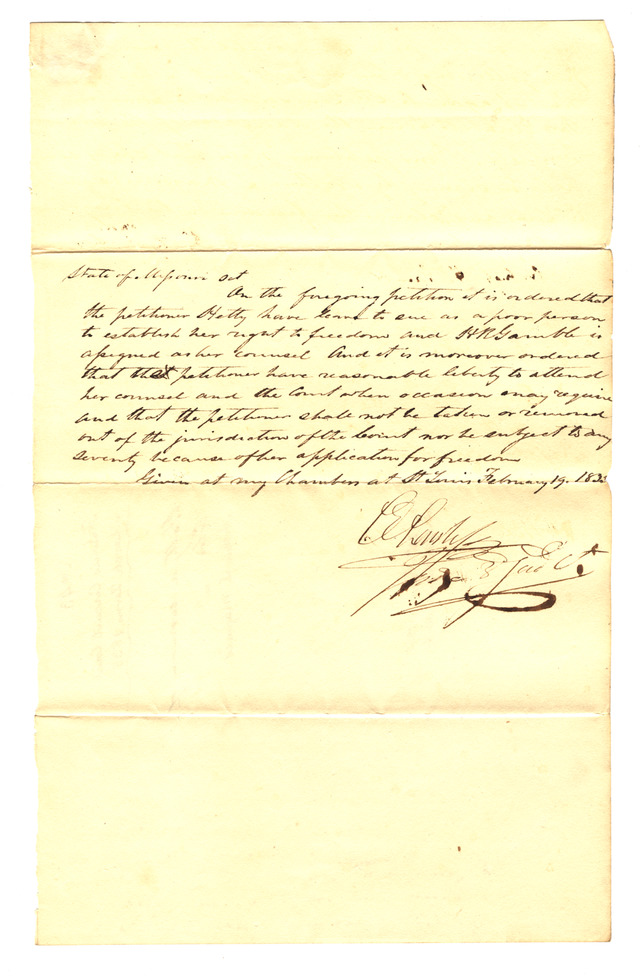 State of Missouri Sct
On the foregoing petition it is ordered that
the petitioner Hetty have leave to sue as a poor person
to establish her right to freedom and H R Gamble is
assigned as her counsel And it is moreover ordered
that that petitioner have reasonable liberty to attend
her counsel and the Court when occasion may require
and that the petitioner shall not be taken or removed
out of the jurisdiction of the Court nor be subject to any
severity because of her application for freedom
Given at my Chambers at St Louis February 19. 183
3 Jud Ct